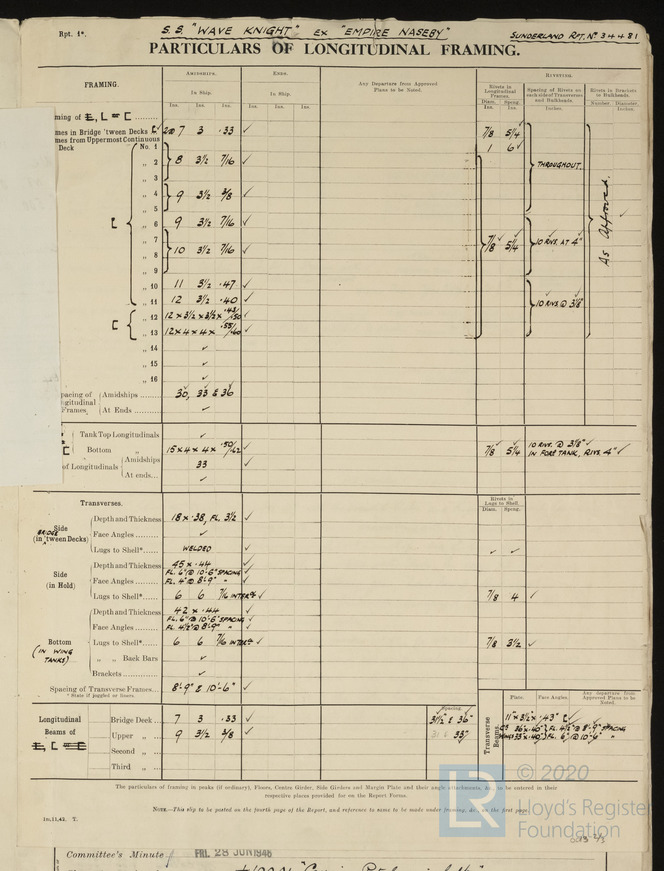 Rpt. 1*.
S.S. "WAVE KNIGHT" EX "EMPIRE NASEBY"
SUNDERLAND RPT. No 34481
PARTICULARS OF LONGITUDINAL FRAMING.
FRAMING.
AMIDSHIPS.
ENDS.
Any Departure from Approved Plans to be Noted.
RIVETING.
In Ship.
In Ship.
Rivets in Longitudinal Frames.
Spacing of Rivets on each side of Transverses and Bulkheads.
Rivets in Brackets to Bulkheads.
Ins. Ins. Ins. Ins. Ins. Ins.
Diam. Spcng.
Inches.
Number. Diameter.
Ins. Ins.
Inches.
ming of
mes in Bridge 'tween Decks 7 3 .33 ✓ 7/8 5/4
mes from Uppermost Continuous Deck
1 6 ✓
No. 1
„ 2 8 3½ 7/16 ✓ THROUGHOUT.
„ 3
„ 4 9 3½ 3/8 ✓
„ 5
„ 6 9 3½ 7/16 ✓
„ 7
„ 8 10 3½ 7/16 ✓ 7/8 5¼ 10 RIVS. AT 4"
„ 9
As Approved.
„ 10 11 3½ .47 ✓
„ 11 12 3½ .40 ✓ 10 RIVS. @ 3⅜"
„ 12 12 x 3½ x 3½ x .43/.50 ✓
„ 13 12 x 4 x 4 x .55/.60 ✓
„ 14 ✓
„ 15 ✓
„ 16 ✓
pacing of
ngitudinal
Frames
Amidships 30, 33 & 36
At Ends ✓
Tank Top Longitudinals ✓
Bottom „ 15 x 4 x 4 x .50/.62 ✓ 7/8 5¼ 10 RIVS. @ 3⅜" ✓
IN FORE TANK, RIVS. 4" ✓
of Longitudinals
Amidships 33 ✓
At ends... ✓
Transverses.
Rivets in Lugs to Shell.
Diam. Spcng.
Side
BRIDGE
(in 'tween Decks)
Depth and Thickness 18 x .38, FL. 3½ ✓
Face Angles ✓
Lugs to Shell* WELDED ✓ ✓
Side
(in Hold)
Depth and Thickness 45 x .44 ✓
FL. 6" @ 10'-6" SPACING ✓
Face Angles FL. 4" @ 8'-9" „
Lugs to Shell* 6 6 7/16 ✓ 7/8 4 ✓
Depth and Thickness 42 x .44
FL. 6" @ 10'-6" SPACING ✓
Face Angles FL. 4½" @ 8'-9" „
Bottom
(IN WING TANKS)
Lugs to Shell* 6 6 7/16 ✓ 7/8 3½ ✓
„ „ Back Bars ✓
Brackets ✓
Spacing of Transverse Frames... 8'-9" & 10'-6" ✓
* State if joggled or liners.
Plate. Face Angles. Any Departure from Approved Plans to be Noted.
Longitudinal Beams of
Spacing.
Bridge Deck 7 3 .33 ✓ 31½ & 36"
Upper „ 9 3½ 3/8 ✓ 33"
Second „
Third „
Transverse Beams.
11" x 3½" x .43"
36" x .40" FL. 4½" @ 8'-9" SPACING
33" x .40" FL. 6" @ 10'-6" „
The particulars of framing in peaks (if ordinary), Floors, Centre Girder, Side Girders and Margin Plate and their angle attachments, &c., to be entered in their
respective places provided for on the Report Forms.
NOTE.—This slip to be posted on the fourth page of the Report, and reference to same to be made under framing, &c. on the first page.
1m,11,42. T.
© 2020
LR
Lloyd's Register
Foundation
Committee's Minute FRI. 28 JUN 1946